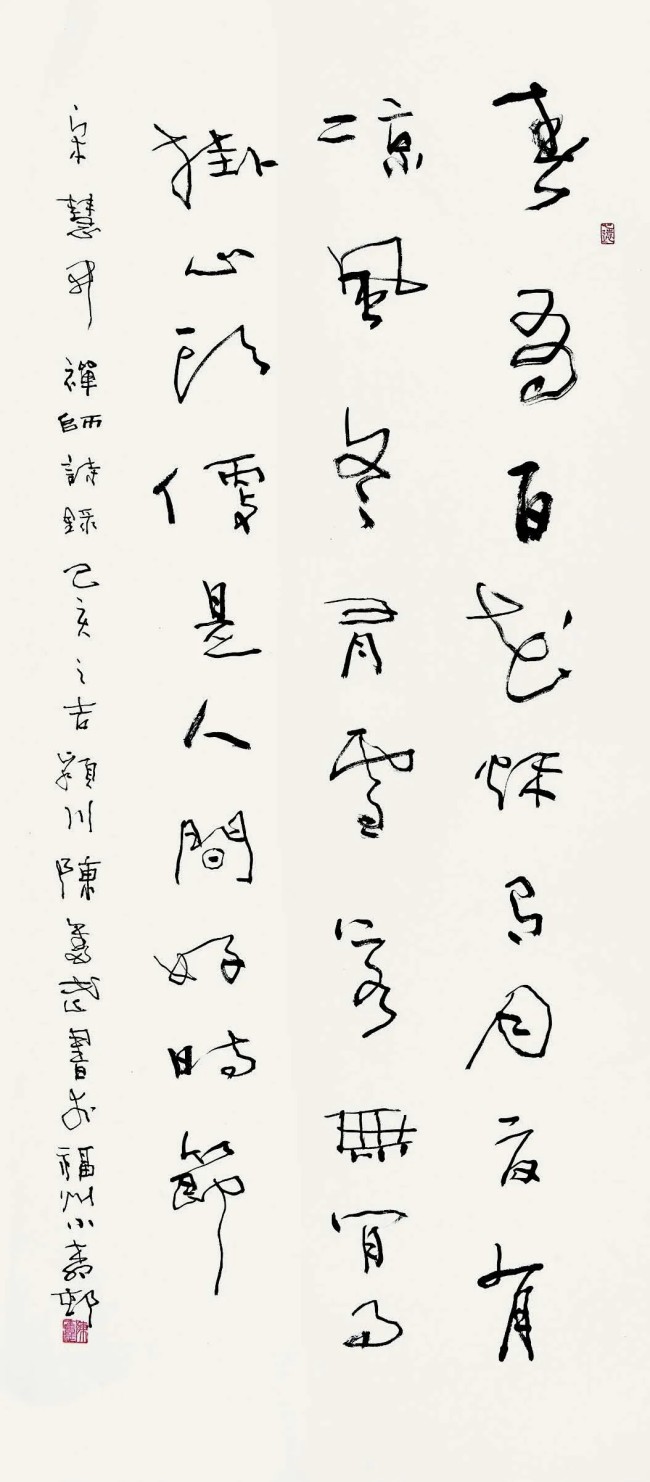 春有百花秋有月夏有
涼風冬有雪若無閒事
掛心頭便是人間好時節
宋慧开禪師詩錄己亥之吉潁川陳書於福州小邨